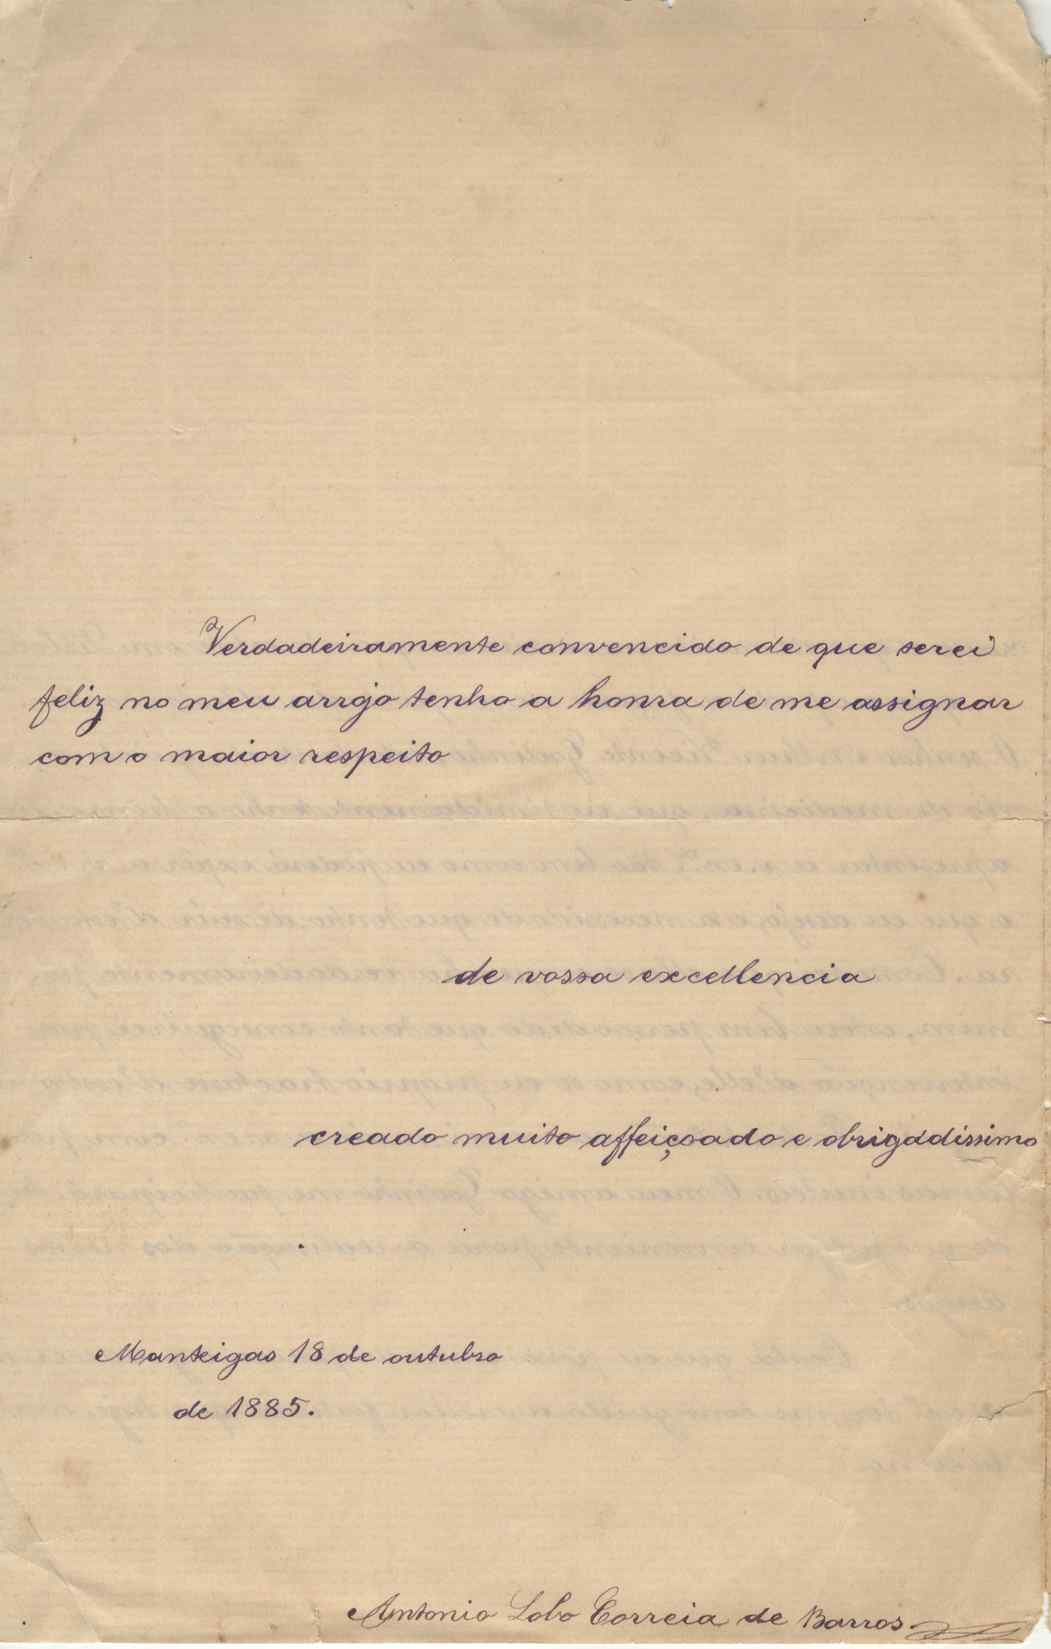 Verdadeiramente convencido de que serei
feliz no meu arrojo tenho a honra de me assignar
com o maior respeito
de vossa excellencia
creado muito affeiçoado e obrigadissimo
Manteigas 18 de outubro
de 1885.
Antonio Lobo Correia de Barros